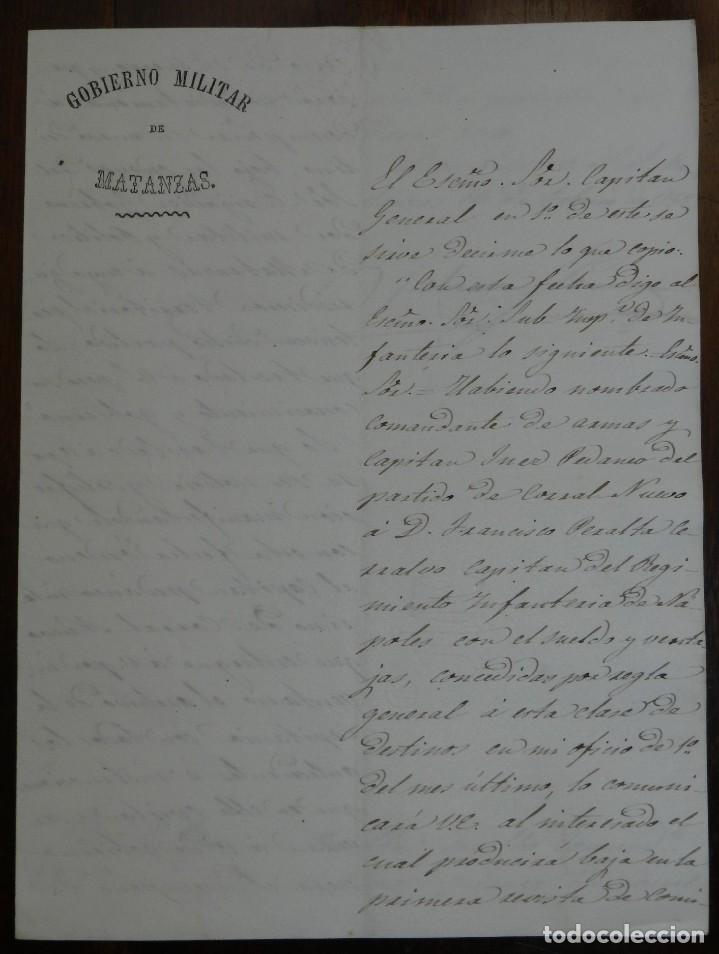 GOBIERNO MILITAR
DE
MATANZAS.
El Escmo. Sor. Capitan
General en 1º. de este se
sirve decirme lo que copio.
"Con esta fecha digo al
Escmo. Sor. Sub-Insp.r de In-
fanteria lo siguiente=Escmo.
Sor.=Habiendo nombrado
Comandante de armas y
Capitan Juez Pedaneo del
partido de Corral Nuevo
á D. Francisco Peralta Ce-
rralvo Capitan del Regi-
miento Infanteria de Ná-
poles con el sueldo y venta-
jas, concedidas por regla
general á esta clase de
destinos en mi oficio de 1º.
del mes último, lo comuni-
cará V.E. al interesado el
cual producirá baja en la
primera revista de comi-
todocoleccion.net